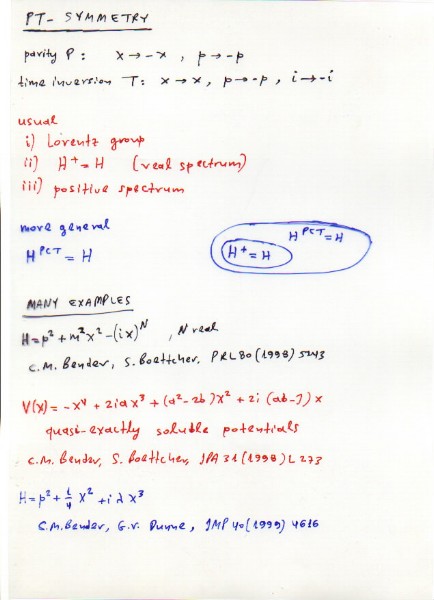 PT- SYMMETRY
parity P: x→-x, p→-p
time inversion T: x→x, p→-p, i→-i
usual
i) Lorentz group
ii) H⁺=H (real spectrum)
iii) positive spectrum
more general
H^PCT = H
H^PCT=H
H⁺=H
MANY EXAMPLES
H=p²+m²x²-(ix)^N, N real
C.M. Bender, S. Boettcher, PRL 80 (1998) 5243
V(x)=-x⁴+2iax³+(a²-2b)x²+2i(ab-J)x
quasi-exactly soluble potentials
C.M. Bender, S. Boettcher, JPA 31 (1998) L273
H=p²+¼x²+iλx³
C.M. Bender, G.V. Dunne, JMP 40 (1999) 4616